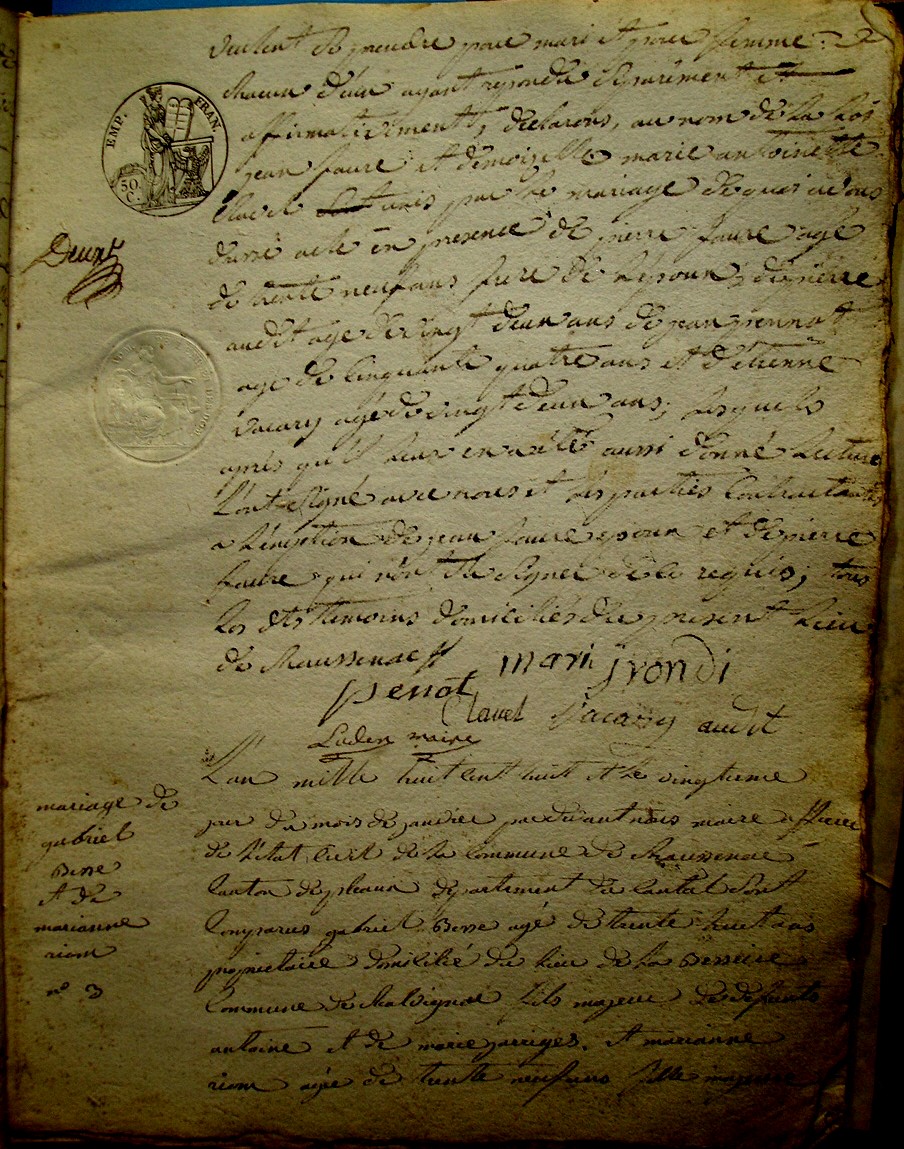 veulent se prendre pour mari et pour femme:
chacun d'eux ayant repondu separément et
affirmativement, declarons, au nom de la loi
EMP. FRAN.
50 C.
jean faure et demoiselle marie antoinette
Clavel unis par le mariage de quoi avons
Deux
dressé acte en presence de pierre faure agé
de trente neuf ans frere de l'epoux, de pierre
audit agé de vingt deux ans de jean pennot
agé de cinquante quatre ans et d'etienne
vacary agé de vingt deux ans, lesquels
après qu'il leur en a été aussi donné lecture
l'ont signé avec nous et les parties contractantes
a l'exception de jean faure epoux et de pierre
faure qui n'ont su signer de ce requis; tous
les dts temoins domiciliés du present lieu
de Chaussenac
mari jrondi
penot
Clavel vacary audit
maire
L'an mille huit cent huit et le vingtieme
mariage de
gabriel
Besse
et de
marianne
riom
n° 3
jour du mois de janvier pardevant nous maire officier
de l'etat civil de la commune de Chaussenac
canton de pleaux departement du Cantal sont
comparus gabriel Besse agé de trente huit ans
propietaire domicilié du lieu de la Besseire
commune de Chalvignac fils majeur des defunts
antoine et de marie jarriges. et marianne
riom agée de trente neuf ans fille majeure